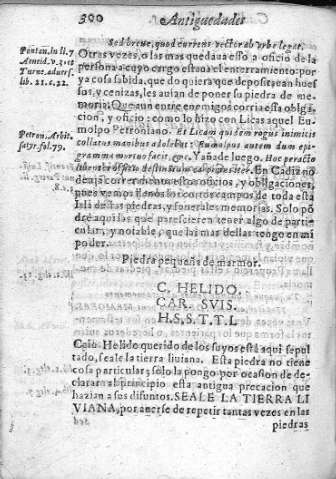 300 Antiguedades
Sed breue, quod currens vector ab vrbe legat.
Otras vezes, o las mas quedaua esso a oficio de la
persona a cuyo cargo estaua el enterramiento: por
ya cosa sabida, que do quiera que depositean hues
sos, y cenizas, les auian de poner su piedra de me-
moria: Que aun entre enemigos corria esta obliga
cion, y oficio; como lo hizo con Licas aquel Eu-
molpo Petroniano. Et Licam quidem rogus inimicis
collatus manibus adolebat: Eumolpus autem dum epi-
gramma mortuo facit, &c. Y añade luego. Hoc peracto
libenter officio destinatum carpimus iter. En Cadiz no
dexa correr tambien estos oficios, y obligaciones,
pues vemos llenos los campos de toda esta
Isla destas piedras, y funerales memorias. Solo pō
drè aqui las que parescieren tener algo de parti-
cular, y notable, que las mas dellas tengo en mi
poder.
Ponton. in li. 7
Æneid. v. 3. et
Turne. aduers.
lib. 21. c. 22.
Petron. Arbit.
satyr. fol. 79.
Piedra pequeña de marmor.
C. HELIDO.
CAR. SVIS.
H. S. S. T. T. L
Caiu. Helido querido de los suyos està aqui sepul
tado, seale la tierra liuiana. Esta piedra no tiene
cosa particular; solo la pongo por ocasion de de-
clarar al principio esta antigua precacion que
hazian a sus difuntos. SEALE LA TIERRA LI
VIANA, por auerse de repetir tantas vezes en las
piedras